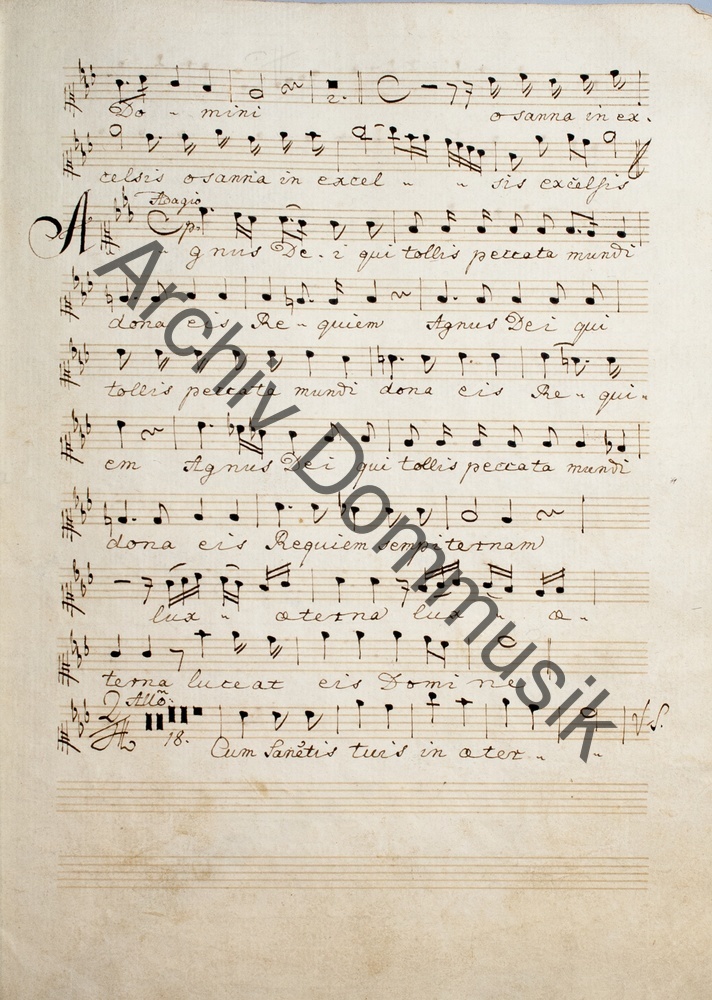 Do - mini 2. o sanna in ex.
celsis osanna in excel " " sis excelsis
Adagio
p.
A " gnus De - i qui tollis peccata mundi
dona eis Re - " quiem Agnus Dei qui
tollis peccata mundi dona eis Re " qui "
em Agnus Dei qui tollis peccata mundi
dona eis Requiem sempiternam
lux " æterna lux " æ -
terna luceat eis Domine
Allo:
18. Cum Sanctis tuis in æter " "
V.S.
Archiv Dommusik